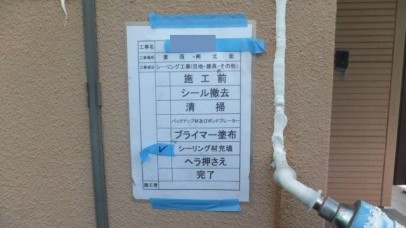 工事名
工事箇所 東・西・南・北面
工事種目 シーリング工事(目地・建具・その他)
施工前
シール撤去
清掃
バックアップ材及びボンドブレーカー
プライマー塗布
シーリング材充填
ヘラ押さえ
完了
施工者